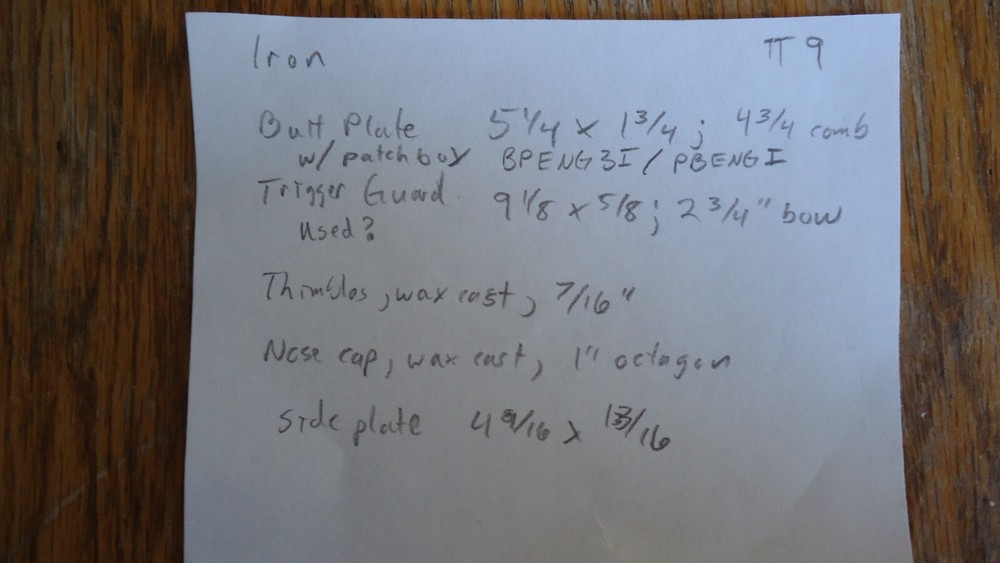 Iron TT 9
Butt Plate 5 1/4 x 1 3/4; 4 3/4 comb
w/ patchbox BPENG3I / PBENGI
Trigger Guard 9 1/8 x 5/8; 2 3/4" bow
used?
Thimbles, wax cast, 7/16"
Nose cap, wax cast, 1" octagon
Side plate 4 9/16 x 13/16